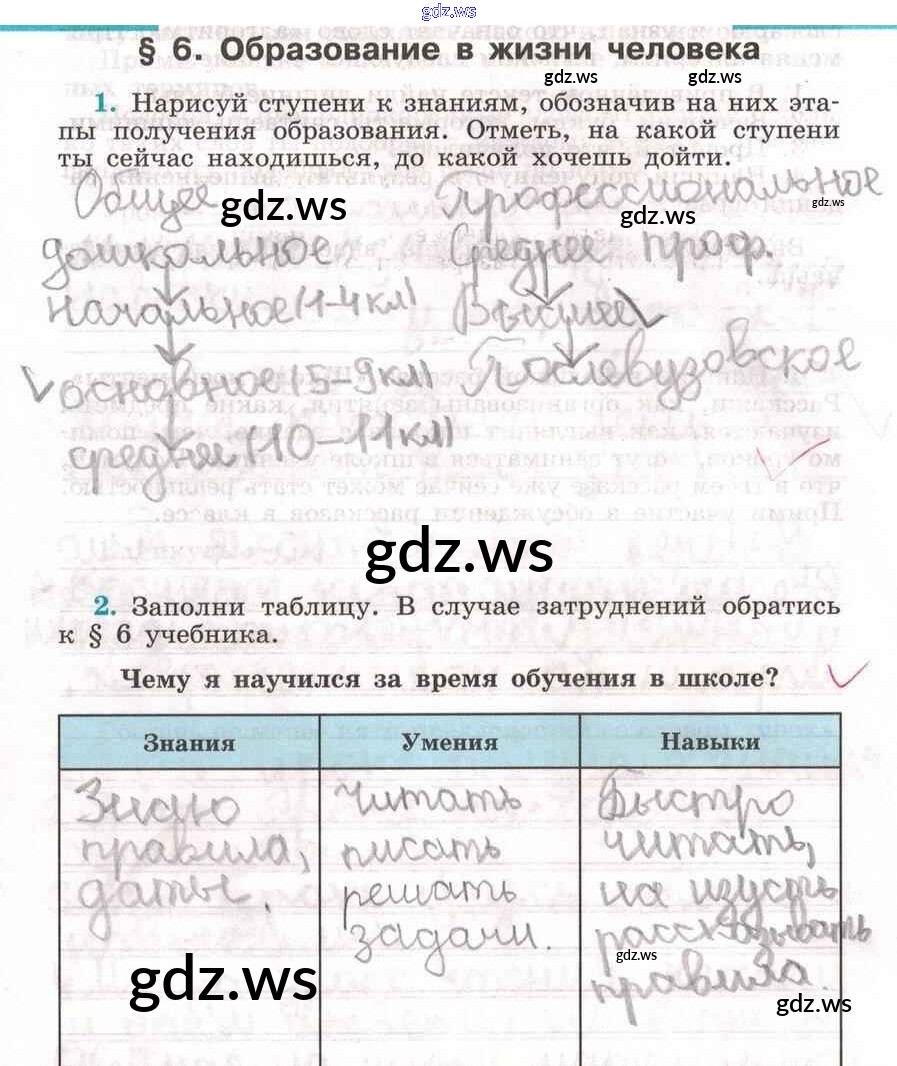 gdz.ws
§ 6. Образование в жизни человека
gdz.ws
gdz.ws
1. Нарисуй ступени к знаниям, обозначив на них эта-
пы получения образования. Отметь, на какой ступени
ты сейчас находишься, до какой хочешь дойти.
Общее Профессиональное
gdz.ws gdz.ws gdz.ws
дошкольное Среднее проф.
начальное (1-4 кл) Высшее
основное (5-9 кл) Послевузовское
средней (10-11 кл)
gdz.ws
2. Заполни таблицу. В случае затруднений обратись
к § 6 учебника.
Чему я научился за время обучения в школе?
Знания Умения Навыки
Знаю Читать Быстро
правила, писать читать,
даты. решать на изусть
задачи. рассказывать
правила.
gdz.ws gdz.ws gdz.ws